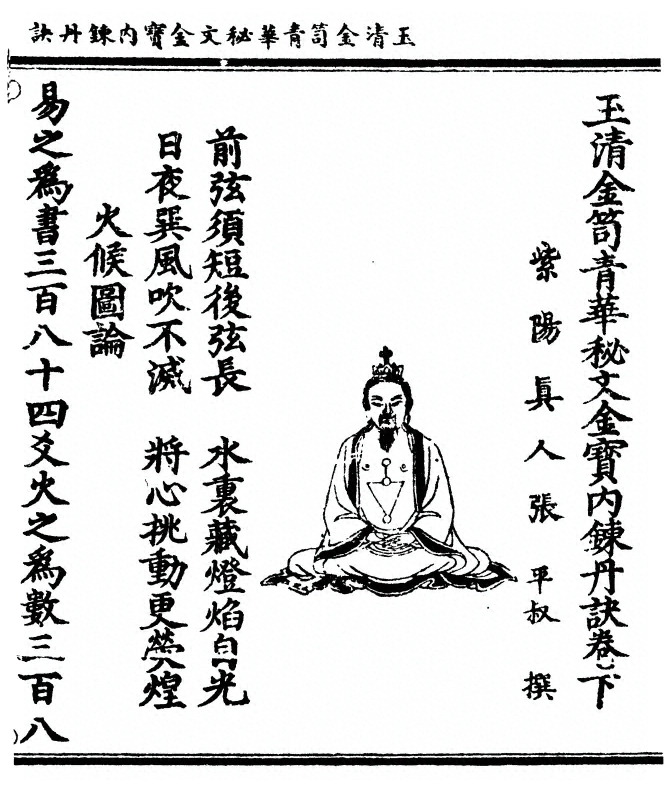 玉清金笥青華秘文金寶內鍊丹訣
玉清金笥青華秘文金寶內鍊丹訣卷下
紫陽眞人張平叔撰
前弦須短後弦長　水裏藏燈焰自光
日夜巽風吹不滅　將心挑動更熒煌
火候圖論
易之爲書三百八十四爻火之爲數三百八